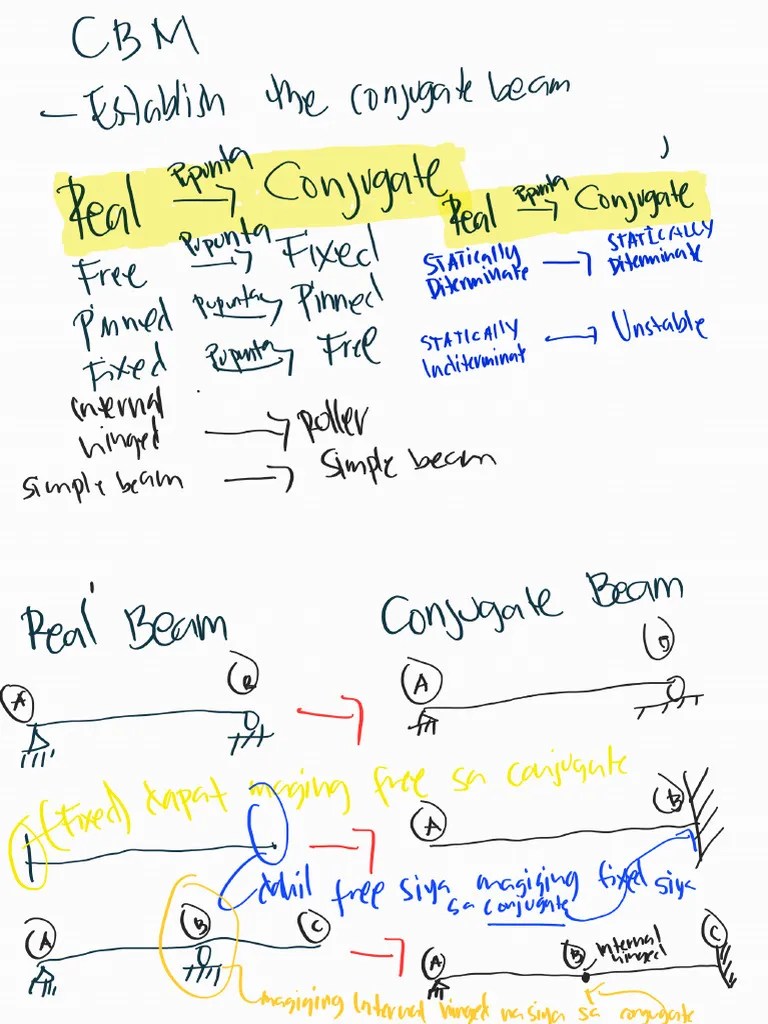 CBM
- Establish the conjugate beam
Real Pupunta → Conjugate
Free Pupunta → Fixed
Pinned Pupunta → Pinned
Fixed Pupunta → Free
internal hinged → roller
simple beam → simple beam
Real Pupunta → Conjugate
STATically Diterminate → STATICALLY Diterminate
STATICALLY Inditerminat → Unstable
Real Beam
Conjugate Beam
A B → A B
(Fixed) dapat maging free sa conjugate
→ A B
dahil free siya magiging fixed siya
sa conjugate
A B C → A B internal hinged C
magiging internal hinged na siya sa conjugate